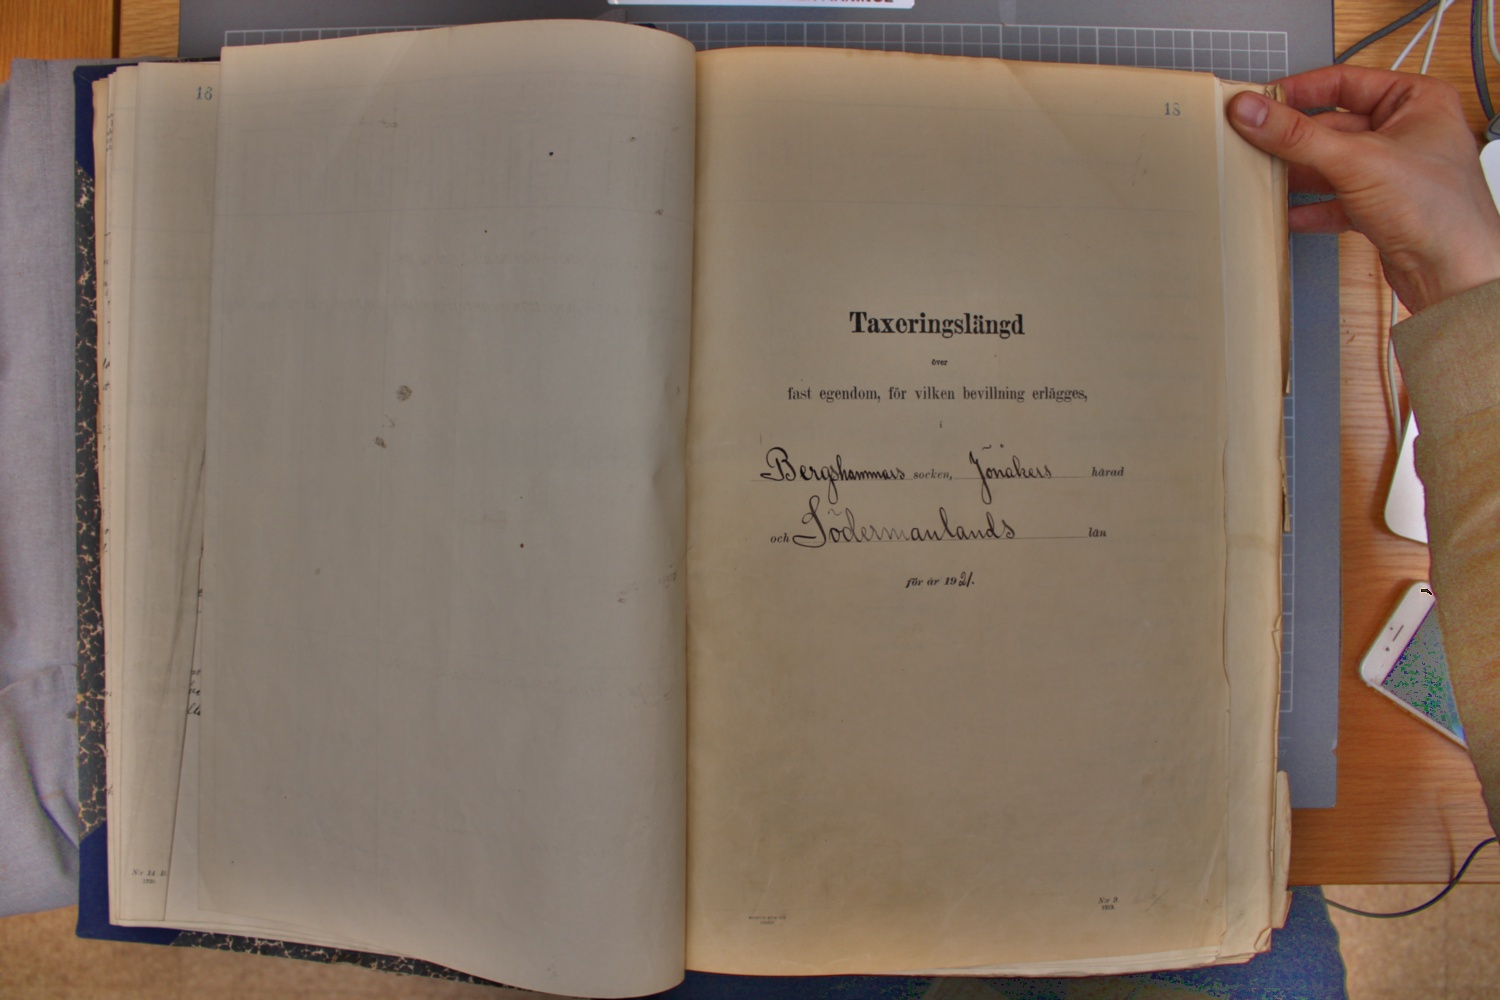 16
18
Taxeringslängd
över
fast egendom, för vilken bevillning erlägges,
i
Bergshammars socken, Jönåkers härad
och Södermanlands län
för år 1921.
N:r 14 B.
N:r 9